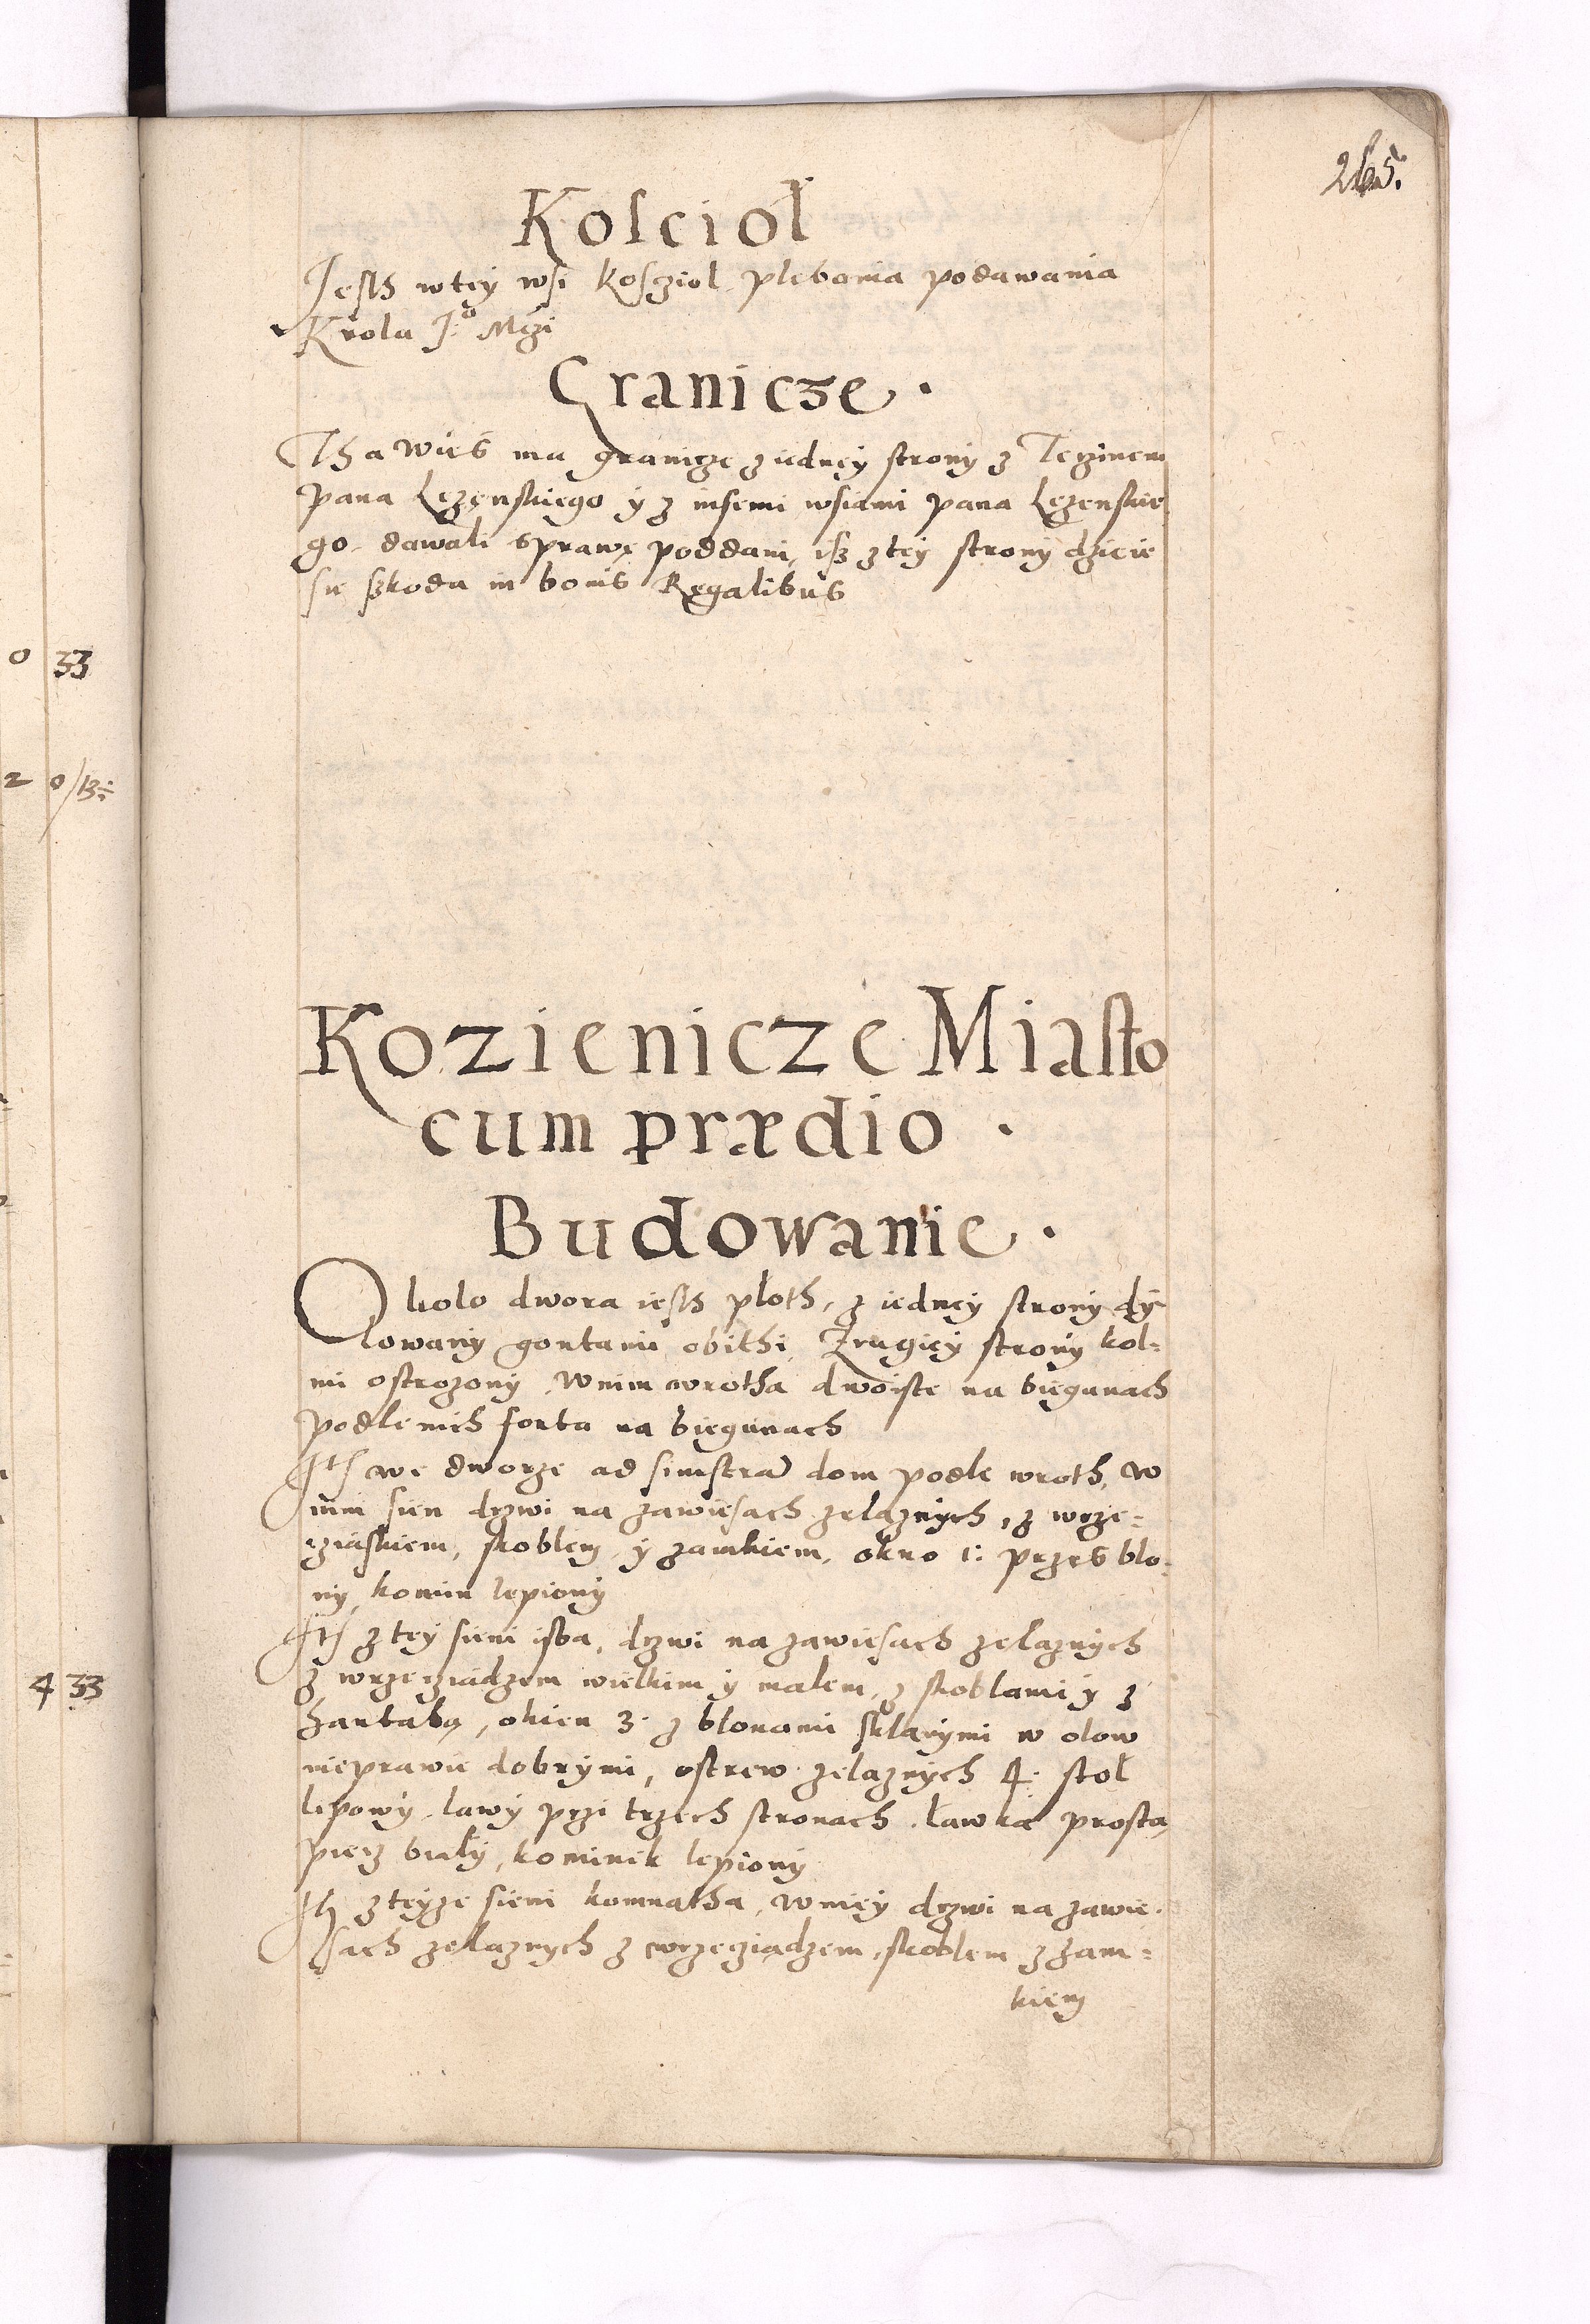 265.
Kosciol
Jesth wtey wsi Kosciol plebania podawania
Krola J:º Mczi
Granicze .
Tha wies ma granicze z iedney strony z Teczinem
pana Lezenskiego y z inssemi wsiami pana Lezenskie
go. dawali sprawę poddani, isz z tey strony dzieie
sie skoda in bonis Regalibus
Kozienicze Miasto
cum prædio .
Budowanie .
Okolo dwora iesth ploth, z iedney strony dy
lowany gontami obithi, Zrugiey strony kol=
mi ostrozony, Wnim wrotha dwoiste na biegunach
podle nich forta na biegunach
Ith we dworze ad sinistra dom podle wroth, w
nim sien drzwi na zawiesach zelaznych, z wrze=
cziaskiem, skoblem y zamkiem, okno 1: przes blo=
ny, komin lepiony
Ith z tey sieni isba, drzwi na zawiesach zelaznych
z wrzecziadzem wielkim y malem, z skoblami y z
hantabą, okien 3. z blonami sklanymi w olow
nieprawie dobrymi, ostrew zelaznych 4. stoł
lipowy, lawy przi trzech stronach, ławka prosta,
piecz biały, kominik lepiony
Ith z teyze sieni komnatha, w niey drzwi na zawie=
sach zelaznych z wrzecziądzem, skoblem z zam=
kiem
0 33
2 0/13÷
4 33